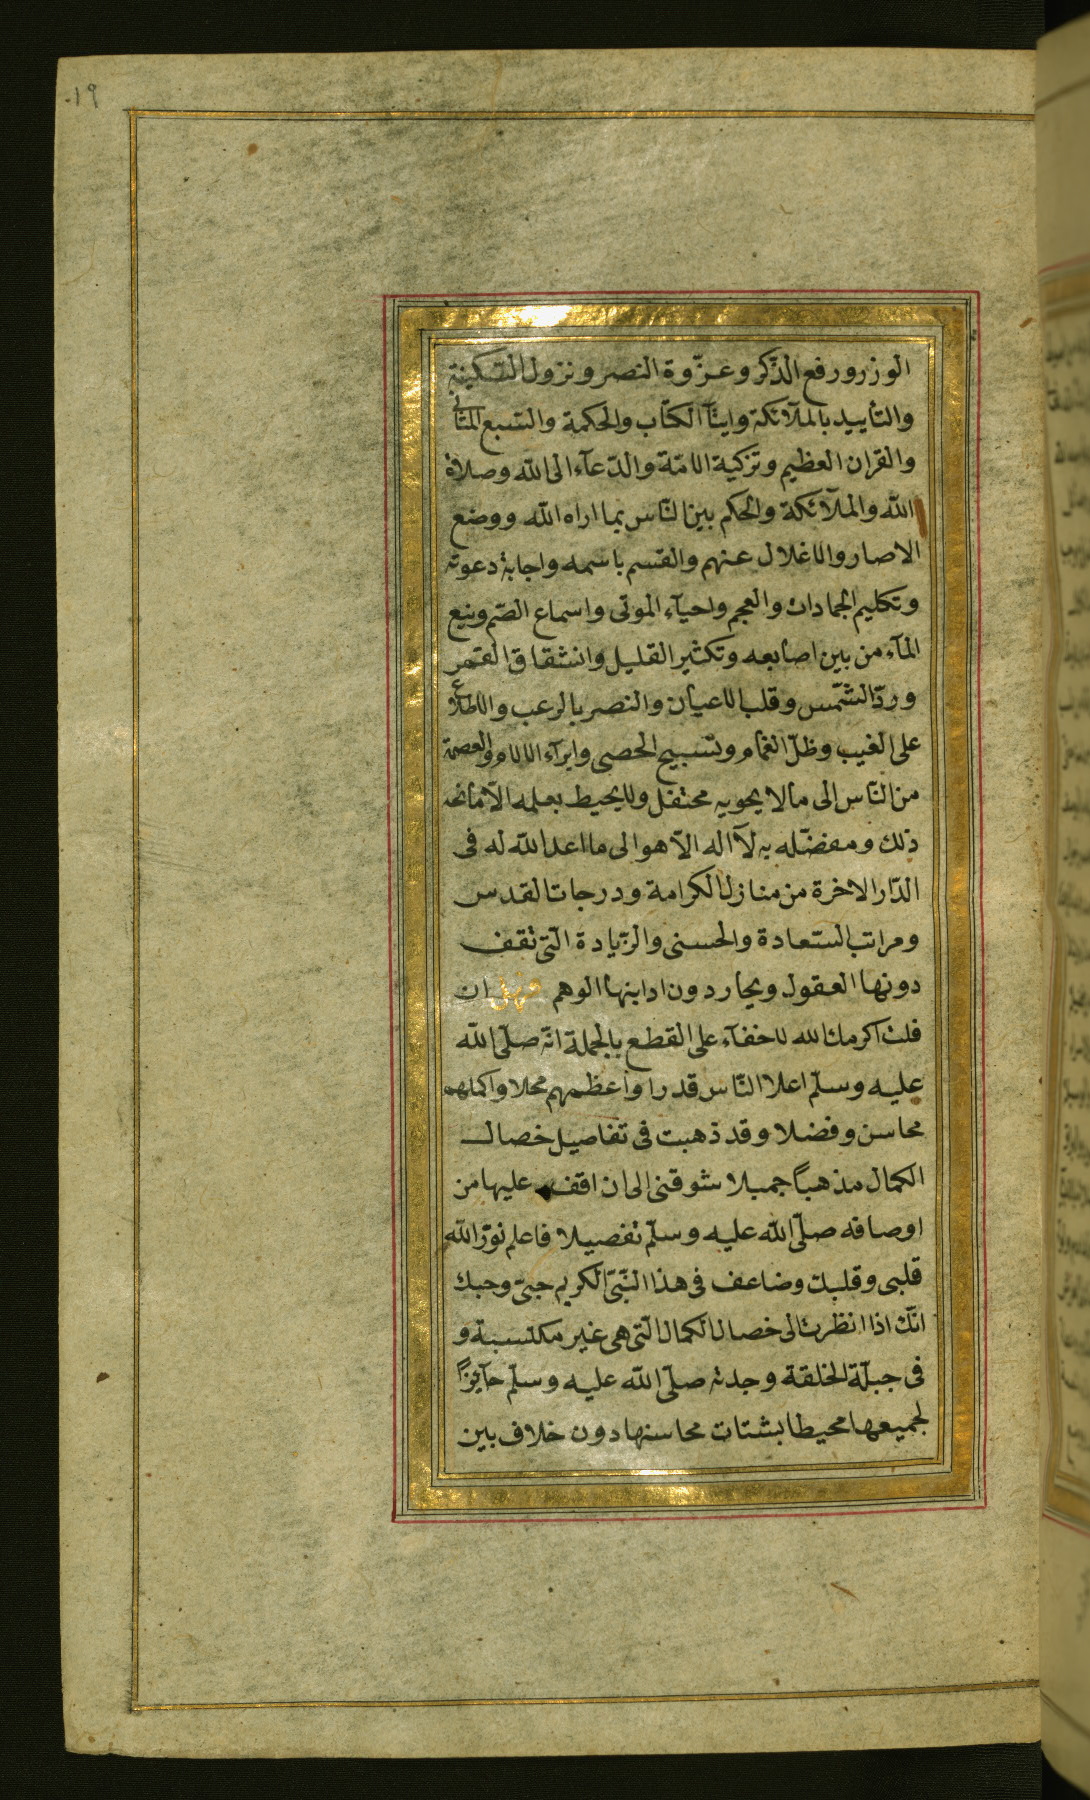 ١٩٠
الوزر ورفع الذّكر وعزّوة النصر ونزول السّكينة
والتأييد بالملآئكة وايتآ الكتاب والحكمة والسّبع المثانى
والقران العظيم وتزكية الامّة والدّعآء الى اللّه وصلاة
اللّه والملآئكة والحكم بين النّاس بما اراه اللّه ووضع
الاصار والاغلال عنهم والقسم باسمه واجابة دعوته
وتكليم الجمادات والعجم واحيآء الموتى واسماع الصّم ونبع
المآء من بين اصابعه وتكثير القليل وانشقاق القمر
وردّ الشّمس وقلب الاعيان والنصر بالرعب والاطلاع
على الغيب وظلّ الغمام وتسبيح الحصى وابرآء الالام والعصمة
من النّاس الى مالا يحويه محتفل ولا يحيط بعلمه الّا مانحه
ذلك ومفضّله به لآ اله الّا هو الى ما اعد اللّه له فى
الدّار الاخرة من منازل الكرامة ودرجات القدس
ومراتب السّعادة والحسنى والزّيادة الّتى تقف
دونها العقول ويحار دون ادانيها الوهم فصل ان
قلت اكرمك الله لا خفآء على القطع بالجملة انّه صلّى اللّه
عليه وسلّم اعلا النّاس قدرا واعظمهم محلا واكملهم
محاسن وفضلا وقد ذهبت فى تفاصيل خصال
الكمال مذهباً جميلا شوقنى الى ان اقف عليها من
اوصافه صلّى اللّه عليه وسلّم تفصيلا فاعلم نوّر اللّه
قلبى وقلبك وضاعف فى هذا النّبىّ الكريم حبىّ وحبك
انّك اذا انظرت الى خصال الكمال الّتى هى غير مكتسبة و
فى جبلّة الخلقة وجدته صلّى اللّه عليه وسلّم حآيزاً
لجميعها محيطا بشتات محاسنها دون خلاف بين